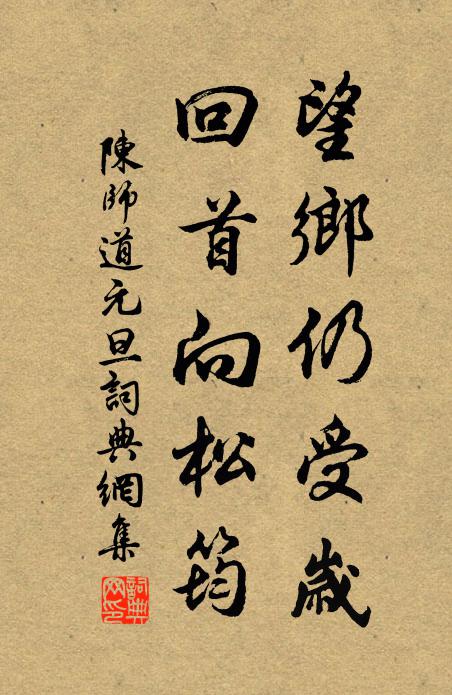 望鄉仍受歲
回首向松筠
陳師道元旦詞典網集
詞典網印